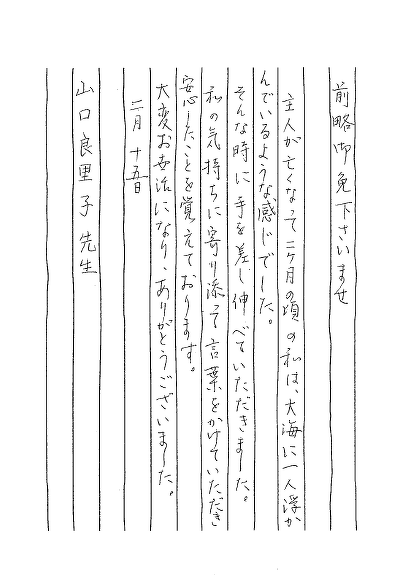 前略御免下さいませ
主人が亡くなって二ヶ月の頃の私は、大海に一人浮か
んでいるような感じでした。
そんな時に手を差し伸べていただきました。
私の気持ちに寄り添って言葉をかけていただき
安心したことを覚えております。
大変お世話になり、ありがとうございました。
二月十五日
山口良里子先生